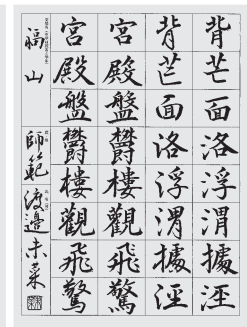 背芒面洛浮渭據涇
背芒面洛浮渭據涇
宮殿盤鬱樓觀飛驚
宮殿盤鬱樓觀飛驚
福山 師範 渡邊未菜